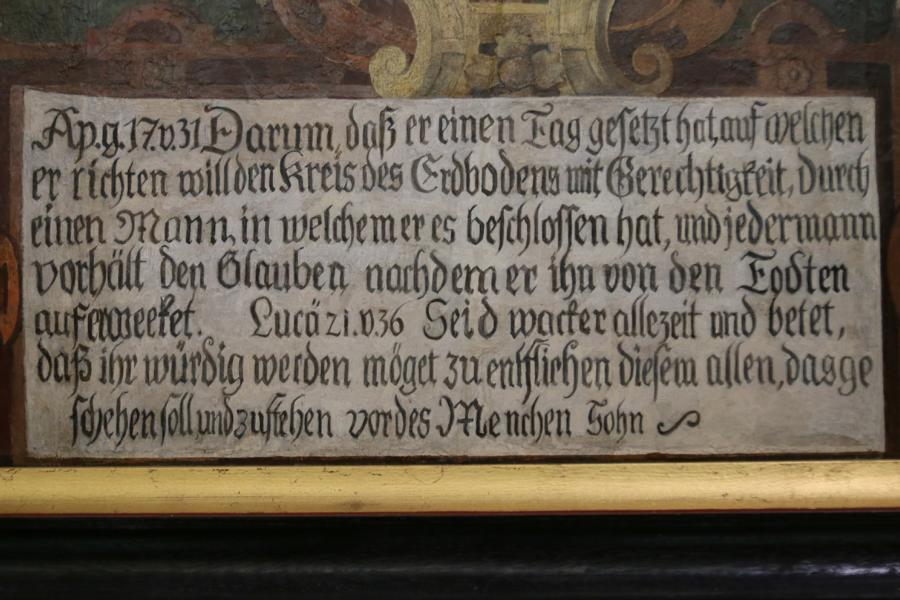 Ap.g. 17.v.31 Darum, daß er einen Tag gesetzt hat, auf welchen
er richten will den Kreis des Erdbodens mit Gerechtigkeit, Durch
einen Mann, in welchem er es beschlossen hat, und jedermann
vorhält den Glauben nachdem er ihn von den Todten
auferweeket. Lucä 21.v.36 Seid wacker allezeit und betet,
daß ihr würdig werden möget zu entfliehen diesem allen, das ge
schehen soll, und zu stehen vor des Menchen Sohn